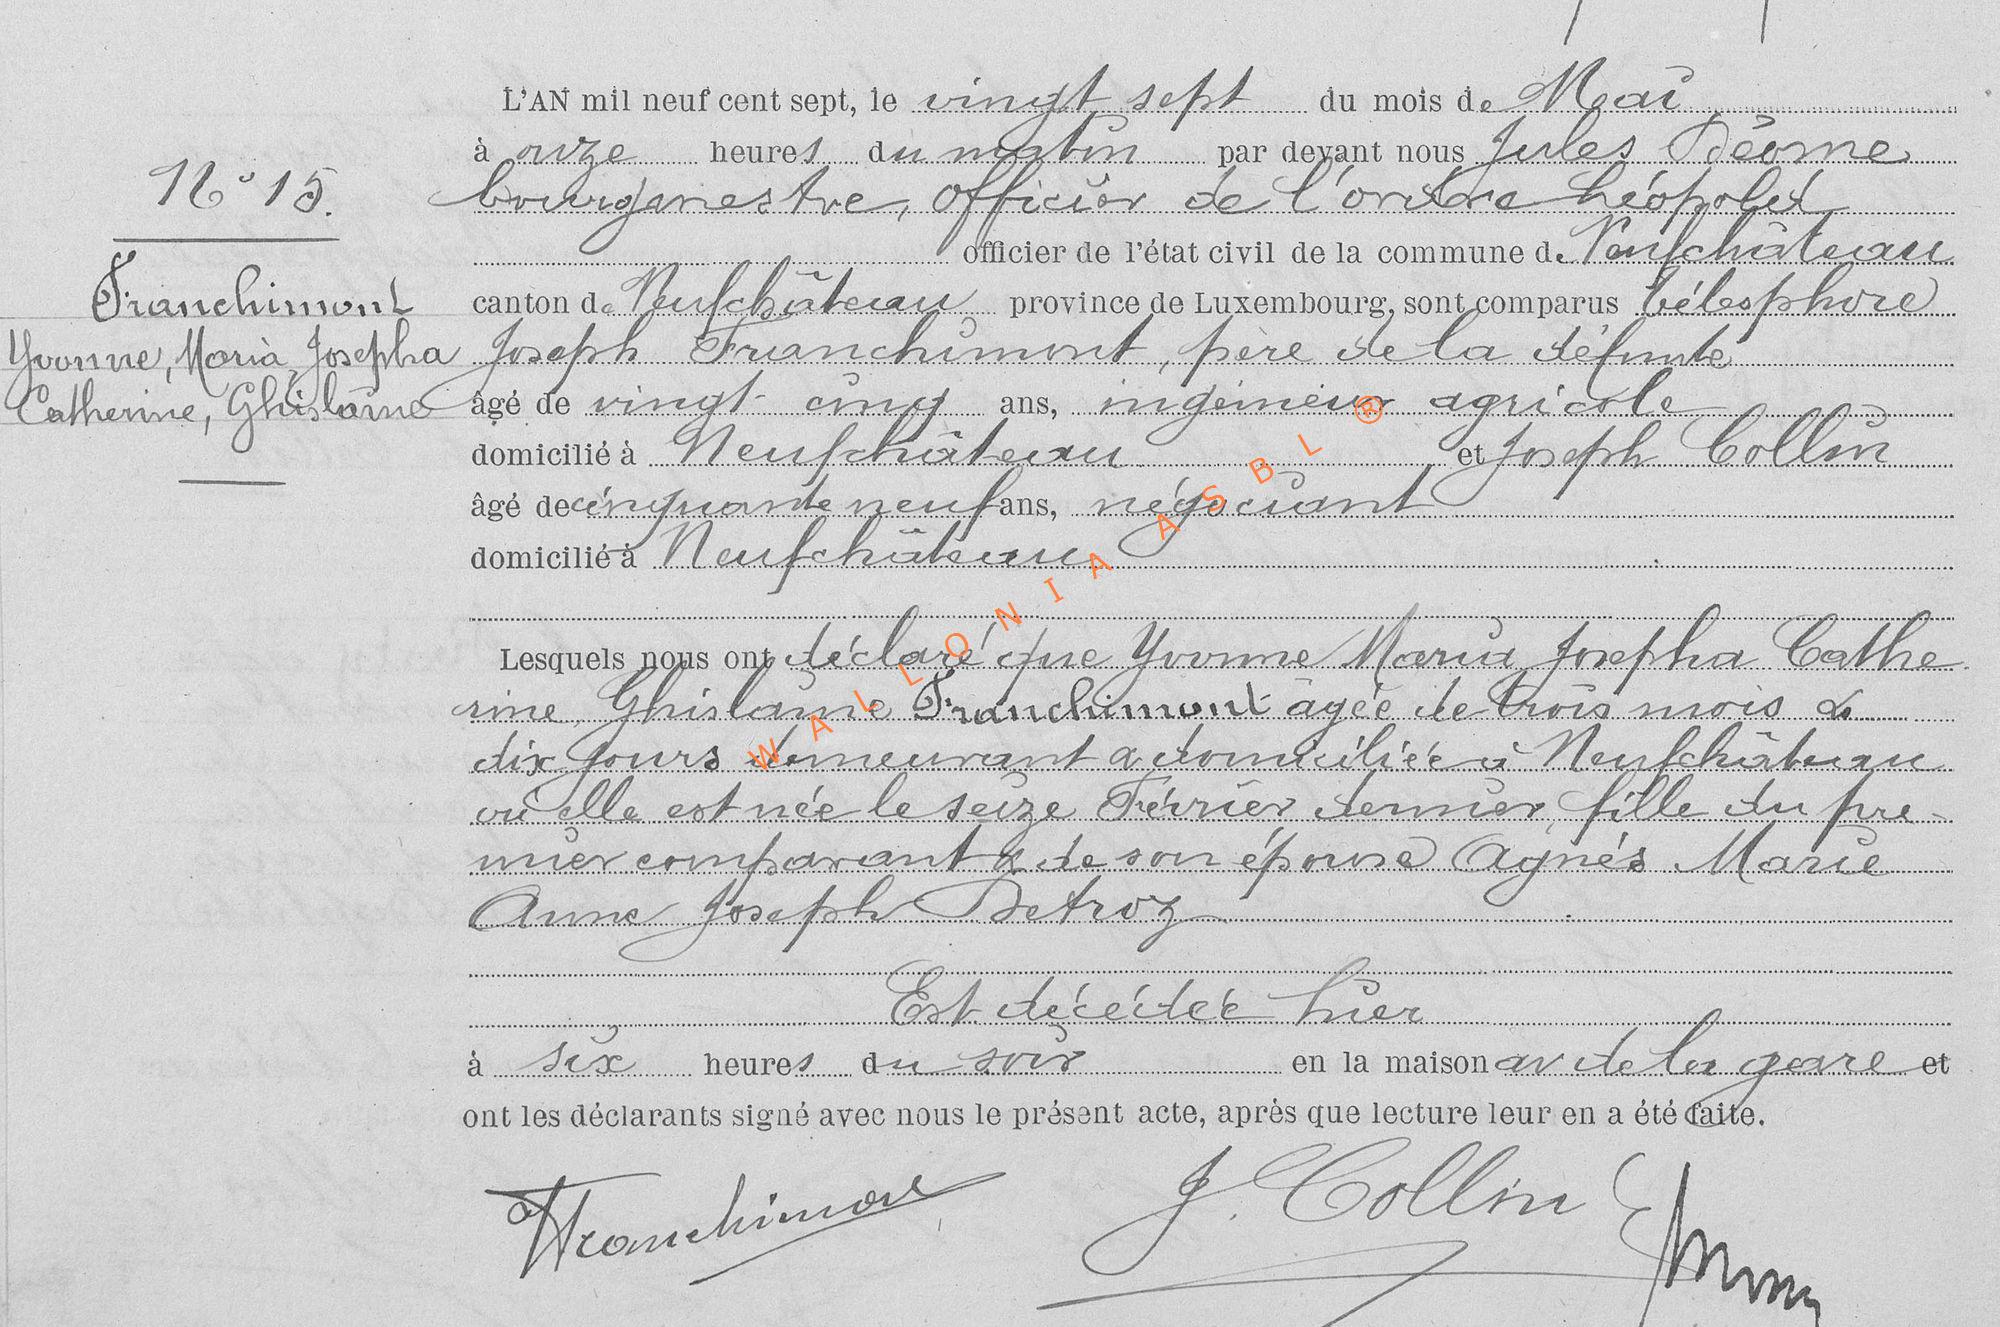 L'AN mil neuf cent sept, le vingt sept du mois de Mai
à onze heures du matin par devant nous Jules Déome
N° 15.
bourgmestre, officier de l'ordre Léopold
officier de l'état civil de la commune de Neufchâteau
Franchimont
canton de Neufchâteau province de Luxembourg, sont comparus Télesphore
Yvonne, Maria, Josepha
Joseph Franchimont, père de la défunte
Catherine, Ghislaine
âgé de vingt-cinq ans, ingénieur agricole
domicilié à Neufchâteau et Joseph Collin
âgé de cinquante neuf ans, négociant
domicilié à Neufchâteau
Lesquels nous ont déclaré que Yvonne Maria Josepha Cathe
rine, Ghislaine Franchimont âgée de trois mois &
dix jours demeurant & domiciliée à Neufchâteau
où elle est née le seize Février dernier, fille du pre-
mier comparant & de son épouse Agnés Marie
Anne Joseph Detroz
Est décédée hier
à six heures du soir en la maison av de la gare et
ont les déclarants signé avec nous le présent acte, après que lecture leur en a été faite.
Franchimont
J. Collin
WALLONIA ASBL ®